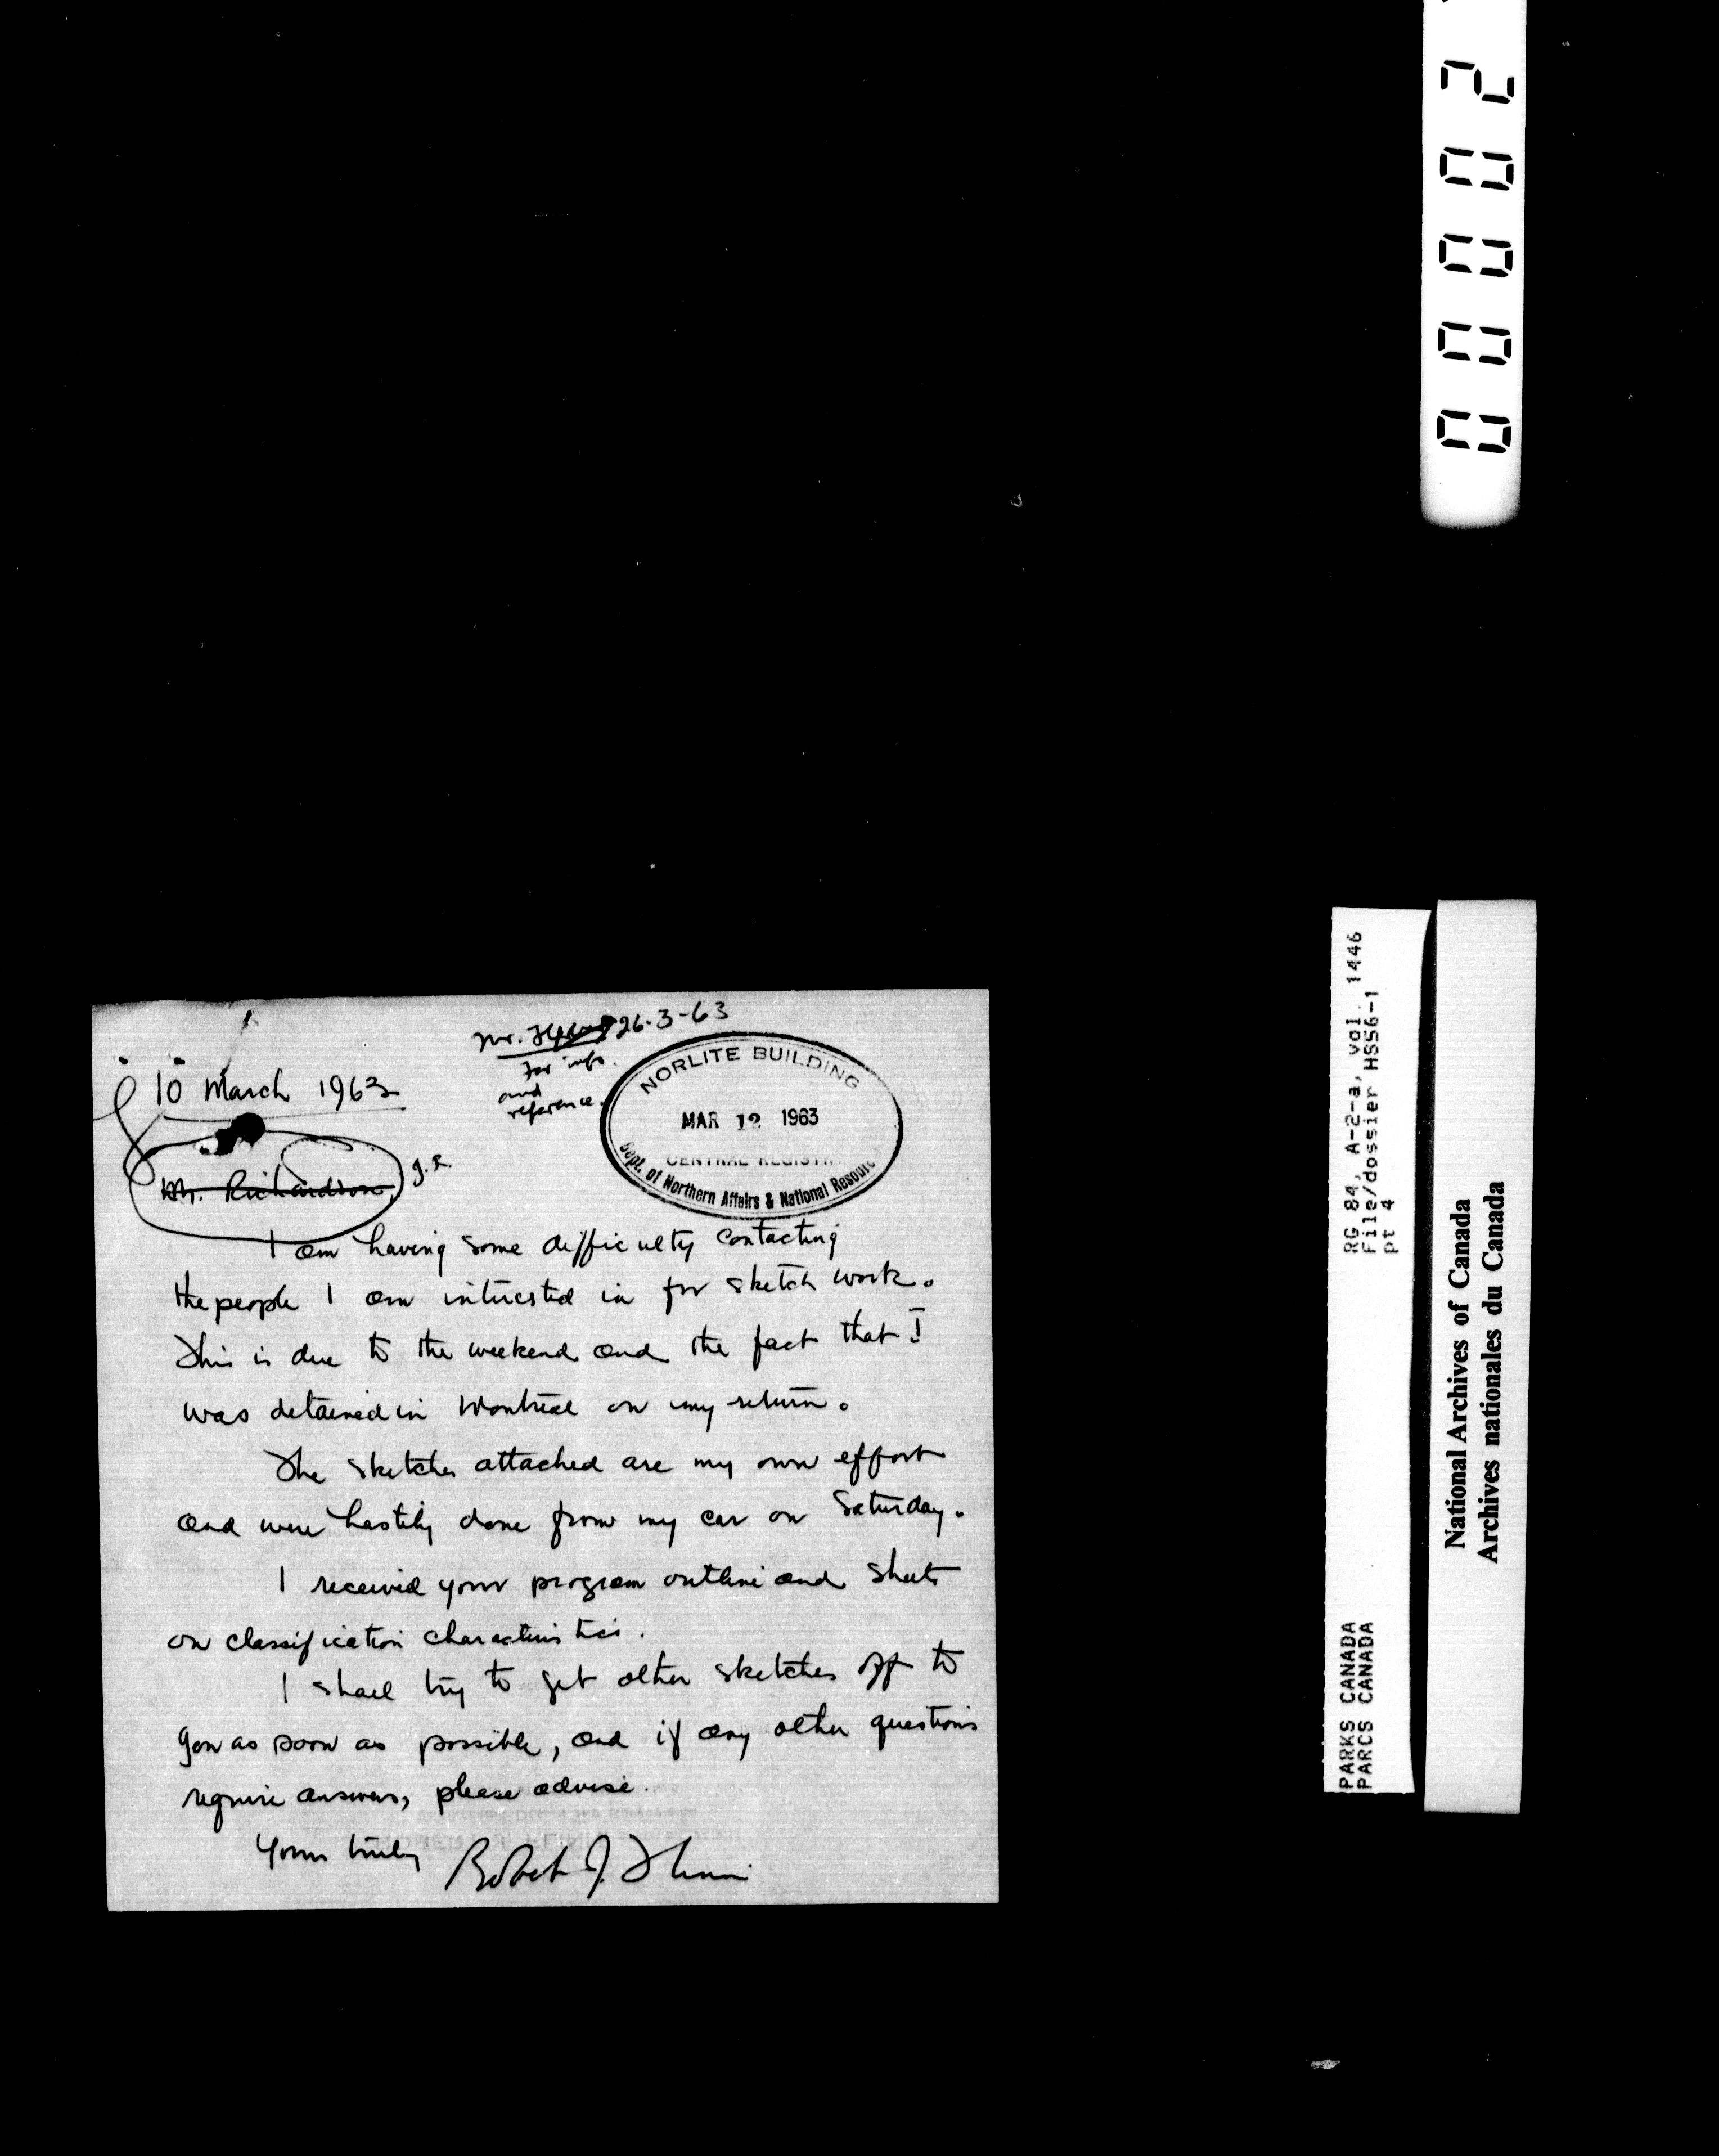 00002
Mr. 26-3-63
for info.
and
reference.
10 March 1963
NORLITE BUILDING
MAR 12 1963
CENTRAL REGISTRY
Dept. of Northern Affairs & National Resources
Mr. Richardson, J.R.
I am having some difficulty contacting
the people I am interested in for sketch work.
This is due to the weekend and the fact that I
was detained in Montreal on my return.
The sketches attached are my own effort
and were hastily done from my car on Saturday.
I received your program outline and sheets
on classification characteristics.
I shall try to get other sketches off to
you as soon as possible, and if any other questions
require answers, please advise.
Yours truly Robert J. Flinn
RG 84, A-2-a, vol. 1446
File/dossier HS56-1
pt 4
PARKS CANADA
PARCS CANADA
National Archives of Canada
Archives nationales du Canada